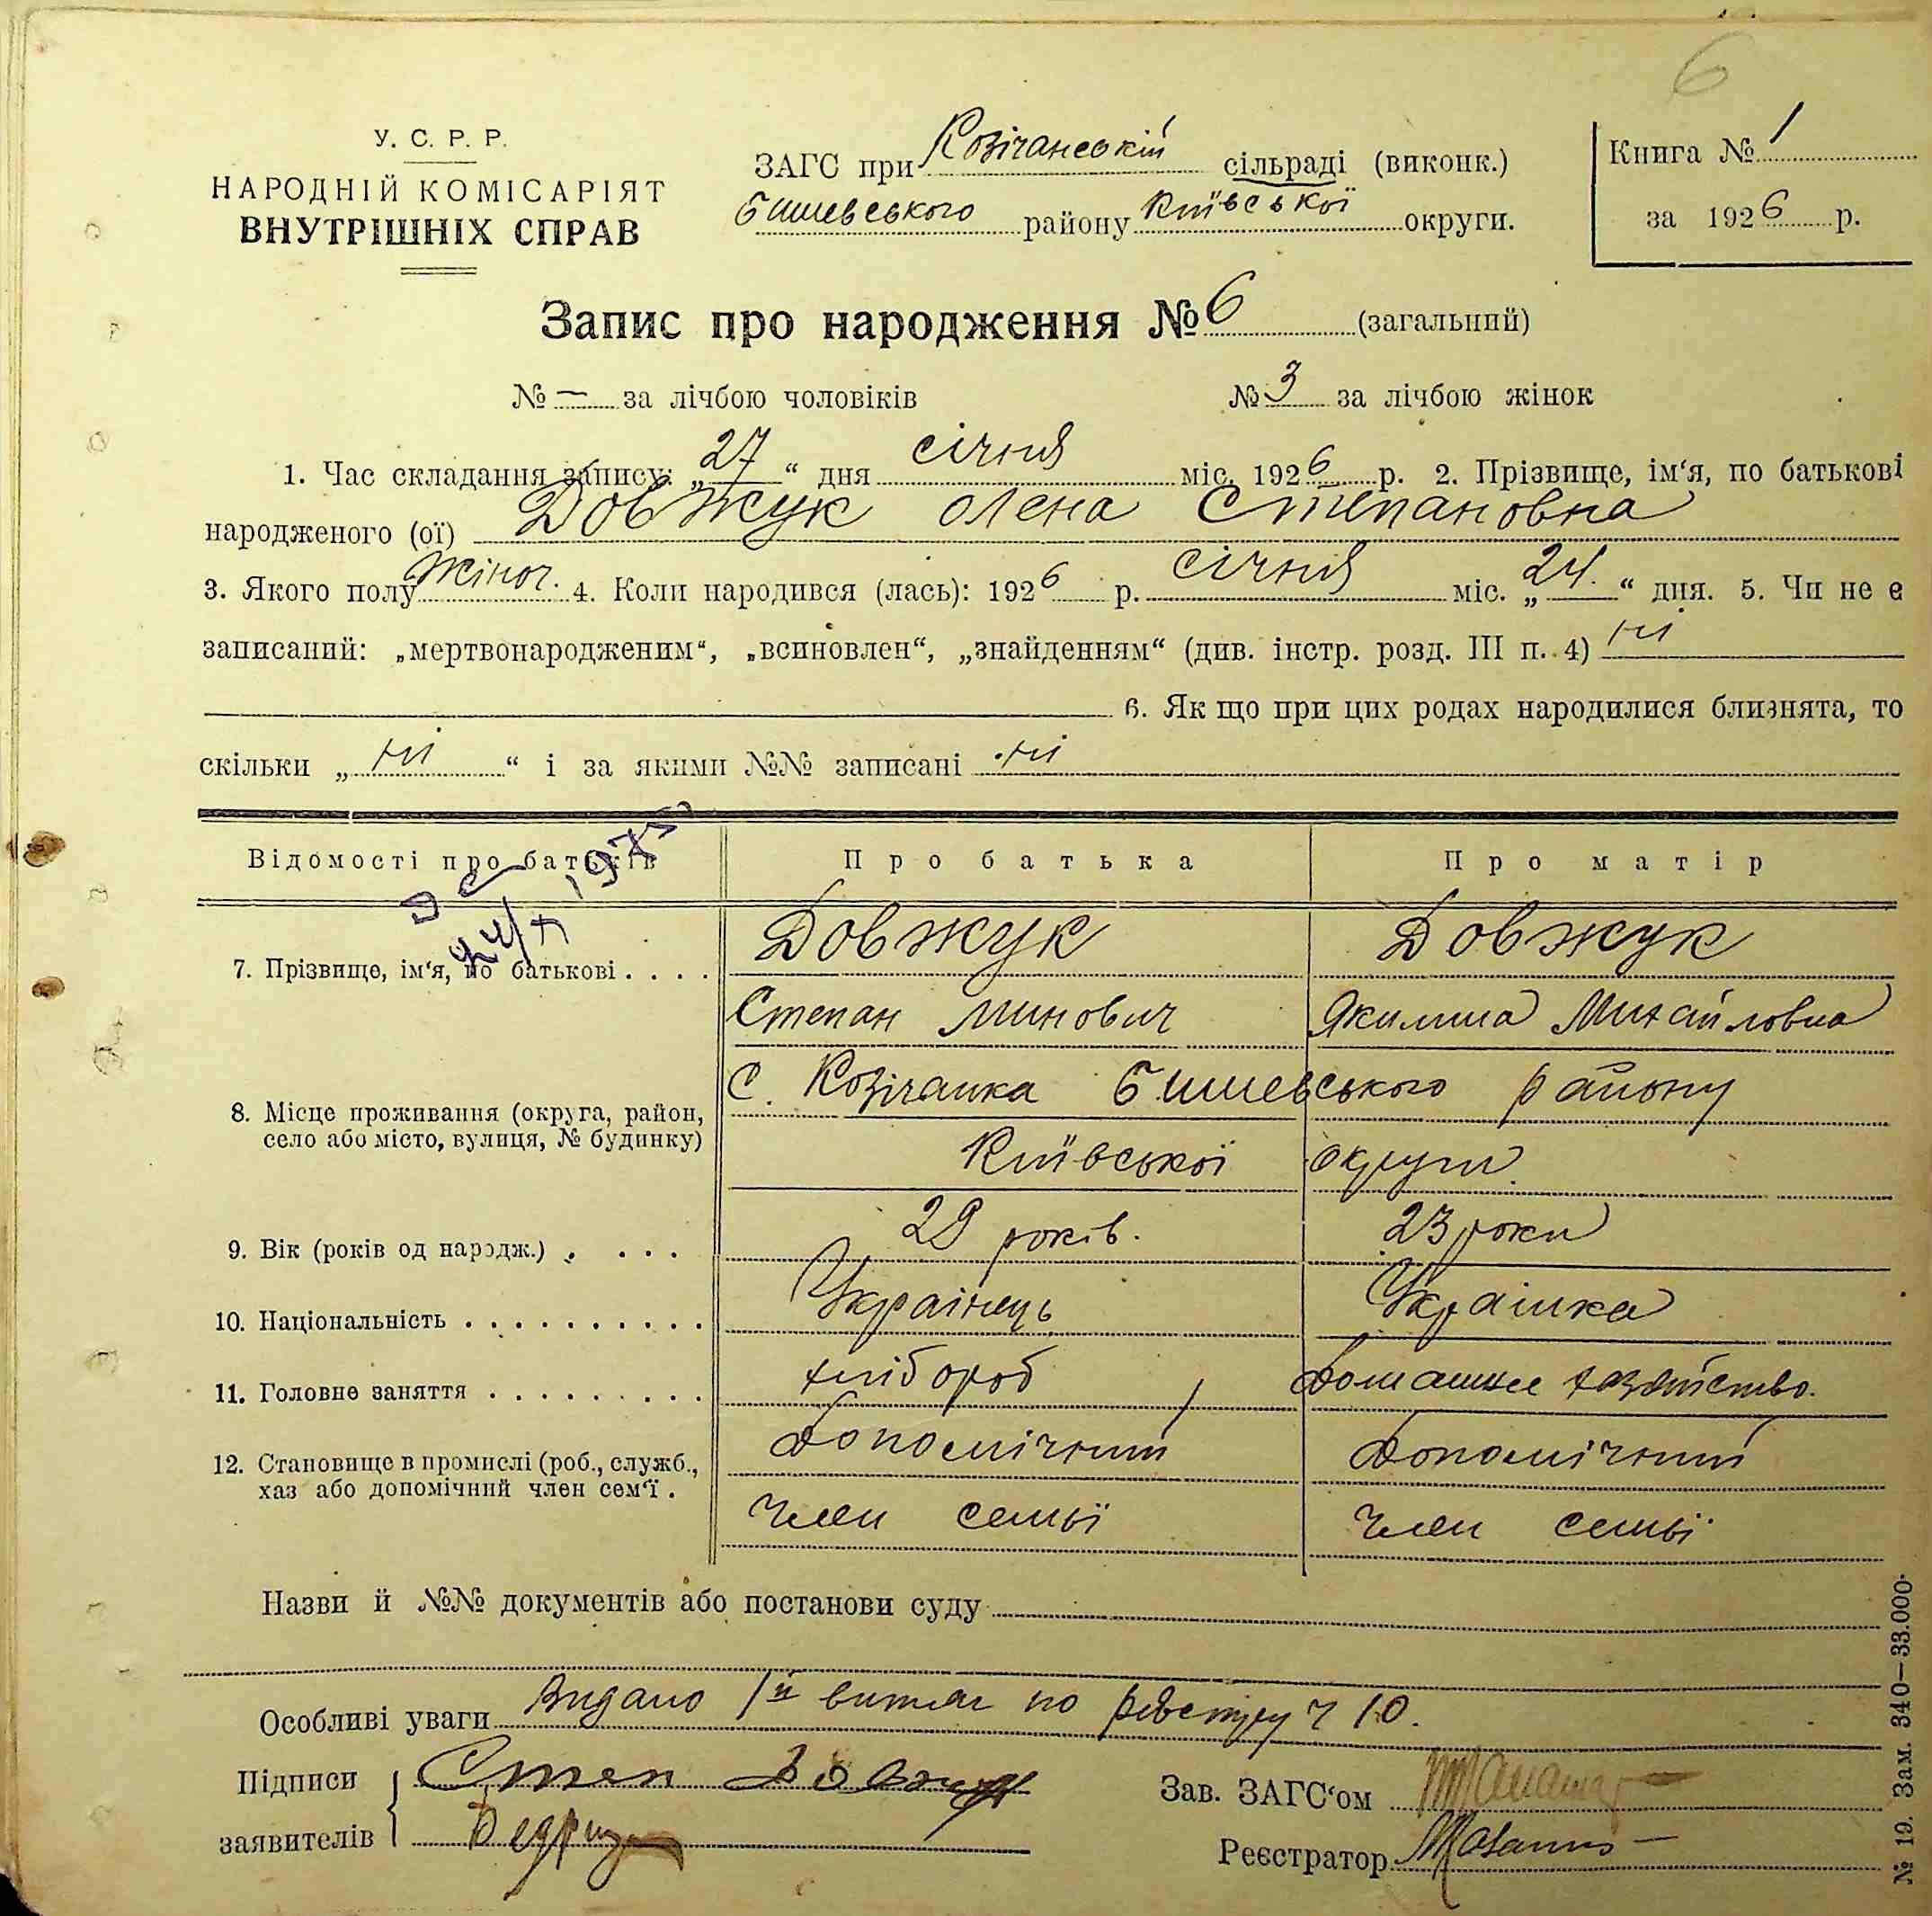 6
У. С. Р. Р.
НАРОДНІЙ КОМІСАРІЯТ
ВНУТРІШНІХ СПРАВ
ЗАГС при Козічанській сільраді (виконк.)
Бишевського району Київської округи.
Книга № 1
за 1926 р.
Запис про народження № 6 (загальний)
№ — за лічбою чоловіків № 3 за лічбою жінок
1. Час складання запису: „27“ дня січня міс. 1926 р. 2. Прізвище, ім‘я, по батькові
народженого (ої) Довжук олена Степановна
3. Якого полу жіноч. 4. Коли народився (лась): 1926 р. січня міс. „24.“ дня. 5. Чи не е
записаний: „мертвонародженим“, „всиновлен“, „знайденням“ (див. інстр. розд. III п. 4) ні
6. Як що при цих родах народилися близнята, то
скільки „ні“ і за якими №№ записані ні
Відомості про батьків Про батька Про матір
7. Прізвище, ім‘я, по батькові . . . . Довжук Довжук
Степан Минович Якилина Михайловна
8. Місце проживання (округа, район, село або місто, вулиця, № будинку) с. Козічанка Бишевського району
Київської округи
9. Вік (років од народж.) . . . . 29 років. 23 роки
10. Національність . . . . . . . . . . Українець Українка
11. Головне заняття . . . . . . . . . хлібороб Домашнее хазяйство.
12. Становище в промислі (роб., служб., Допомічний Допомічний
хаз або допомічний член сем‘ї . член семьї член семьї
Назви й №№ документів або постанови суду
Особливі уваги Видано 1й витяг по реєстру ч 10.
Підписи Степ Довжук
заявителів
Зав. ЗАГС‘ом
Реєстратор
№ 19. Зам. 340—33.000.